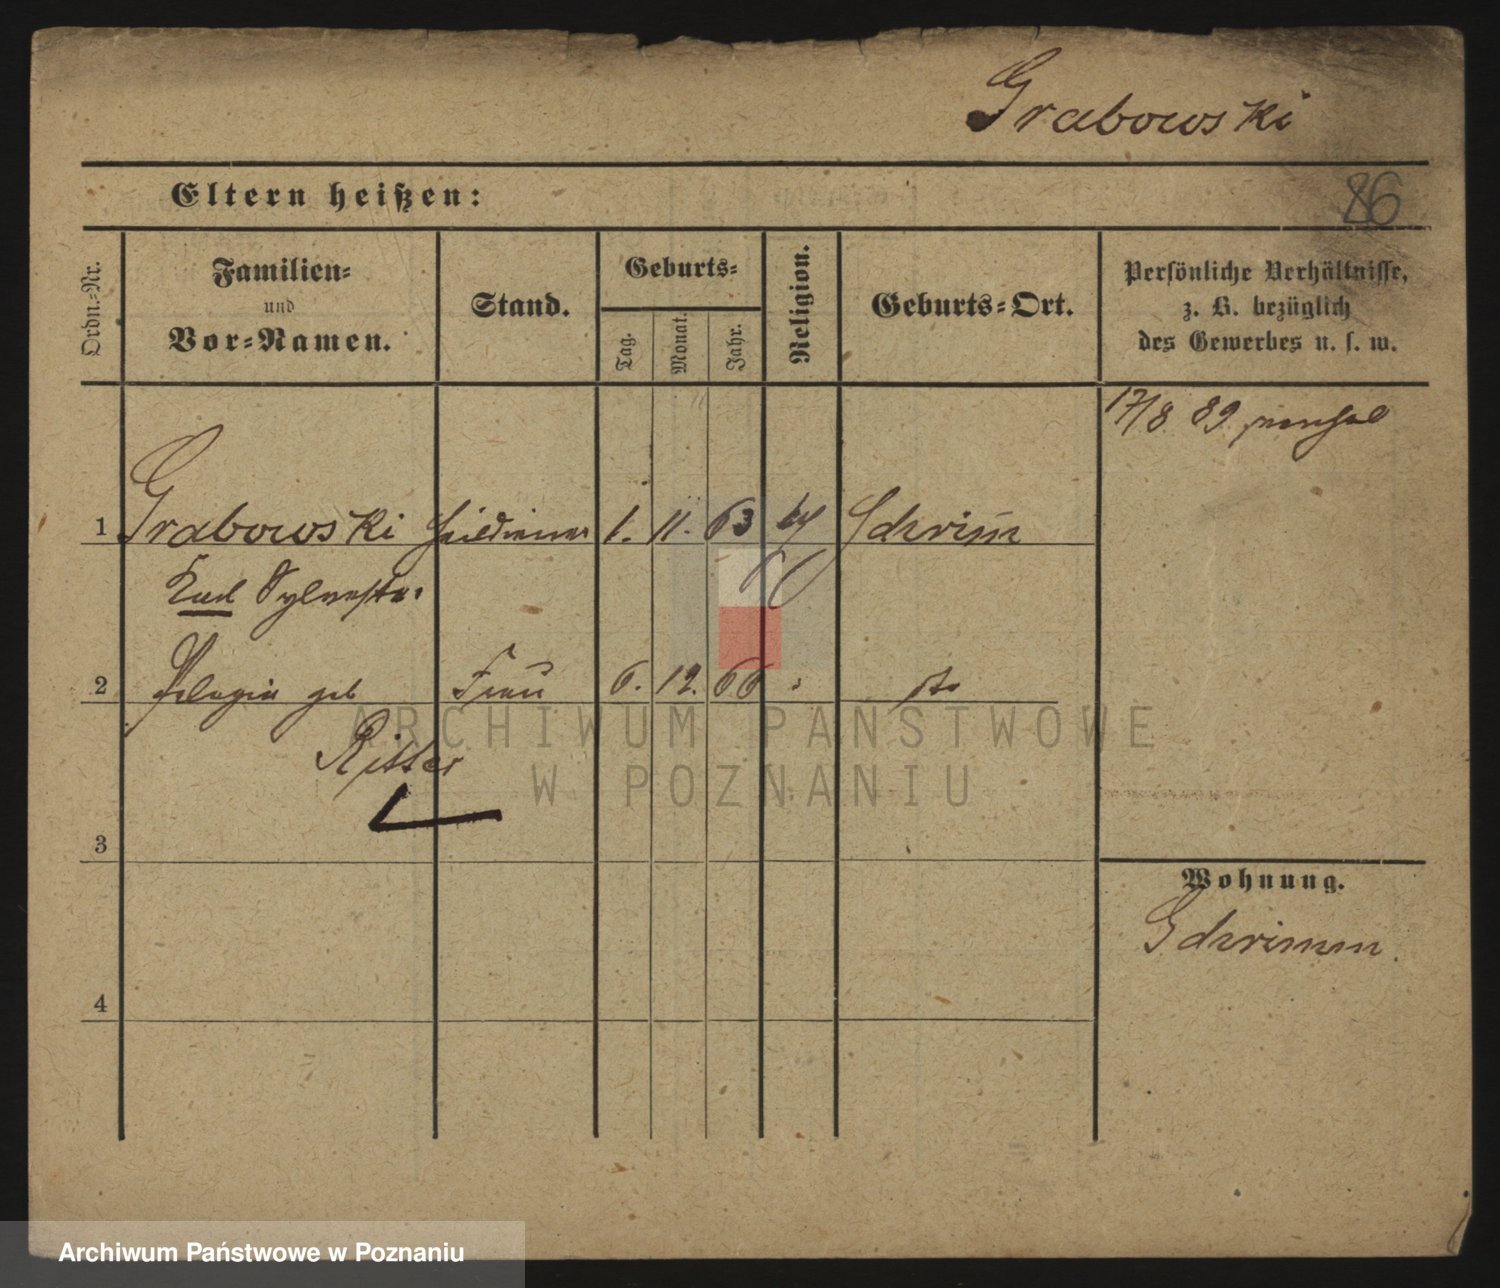 Grabowski
Eltern heißen:
86
Ordn.-Nr.
Familien-
und
Vor-Namen.
Stand.
Geburts-
Tag.
Monat.
Jahr.
Religion.
Geburts-Ort.
Persönliche Verhältnisse,
z. B. bezüglich
des Gewerbes u. s. w.
17/8 89
1 Grabowski 1. 11. 63 Schrim̅
Karl Sylvester
2 Pelagia geb Frau 6. 12. 66
Ritter
3
Wohnung.
Schrimm.
4
ARCHIWUM PAŃSTWOWE
W POZNANIU
Archiwum Państwowe w Poznaniu